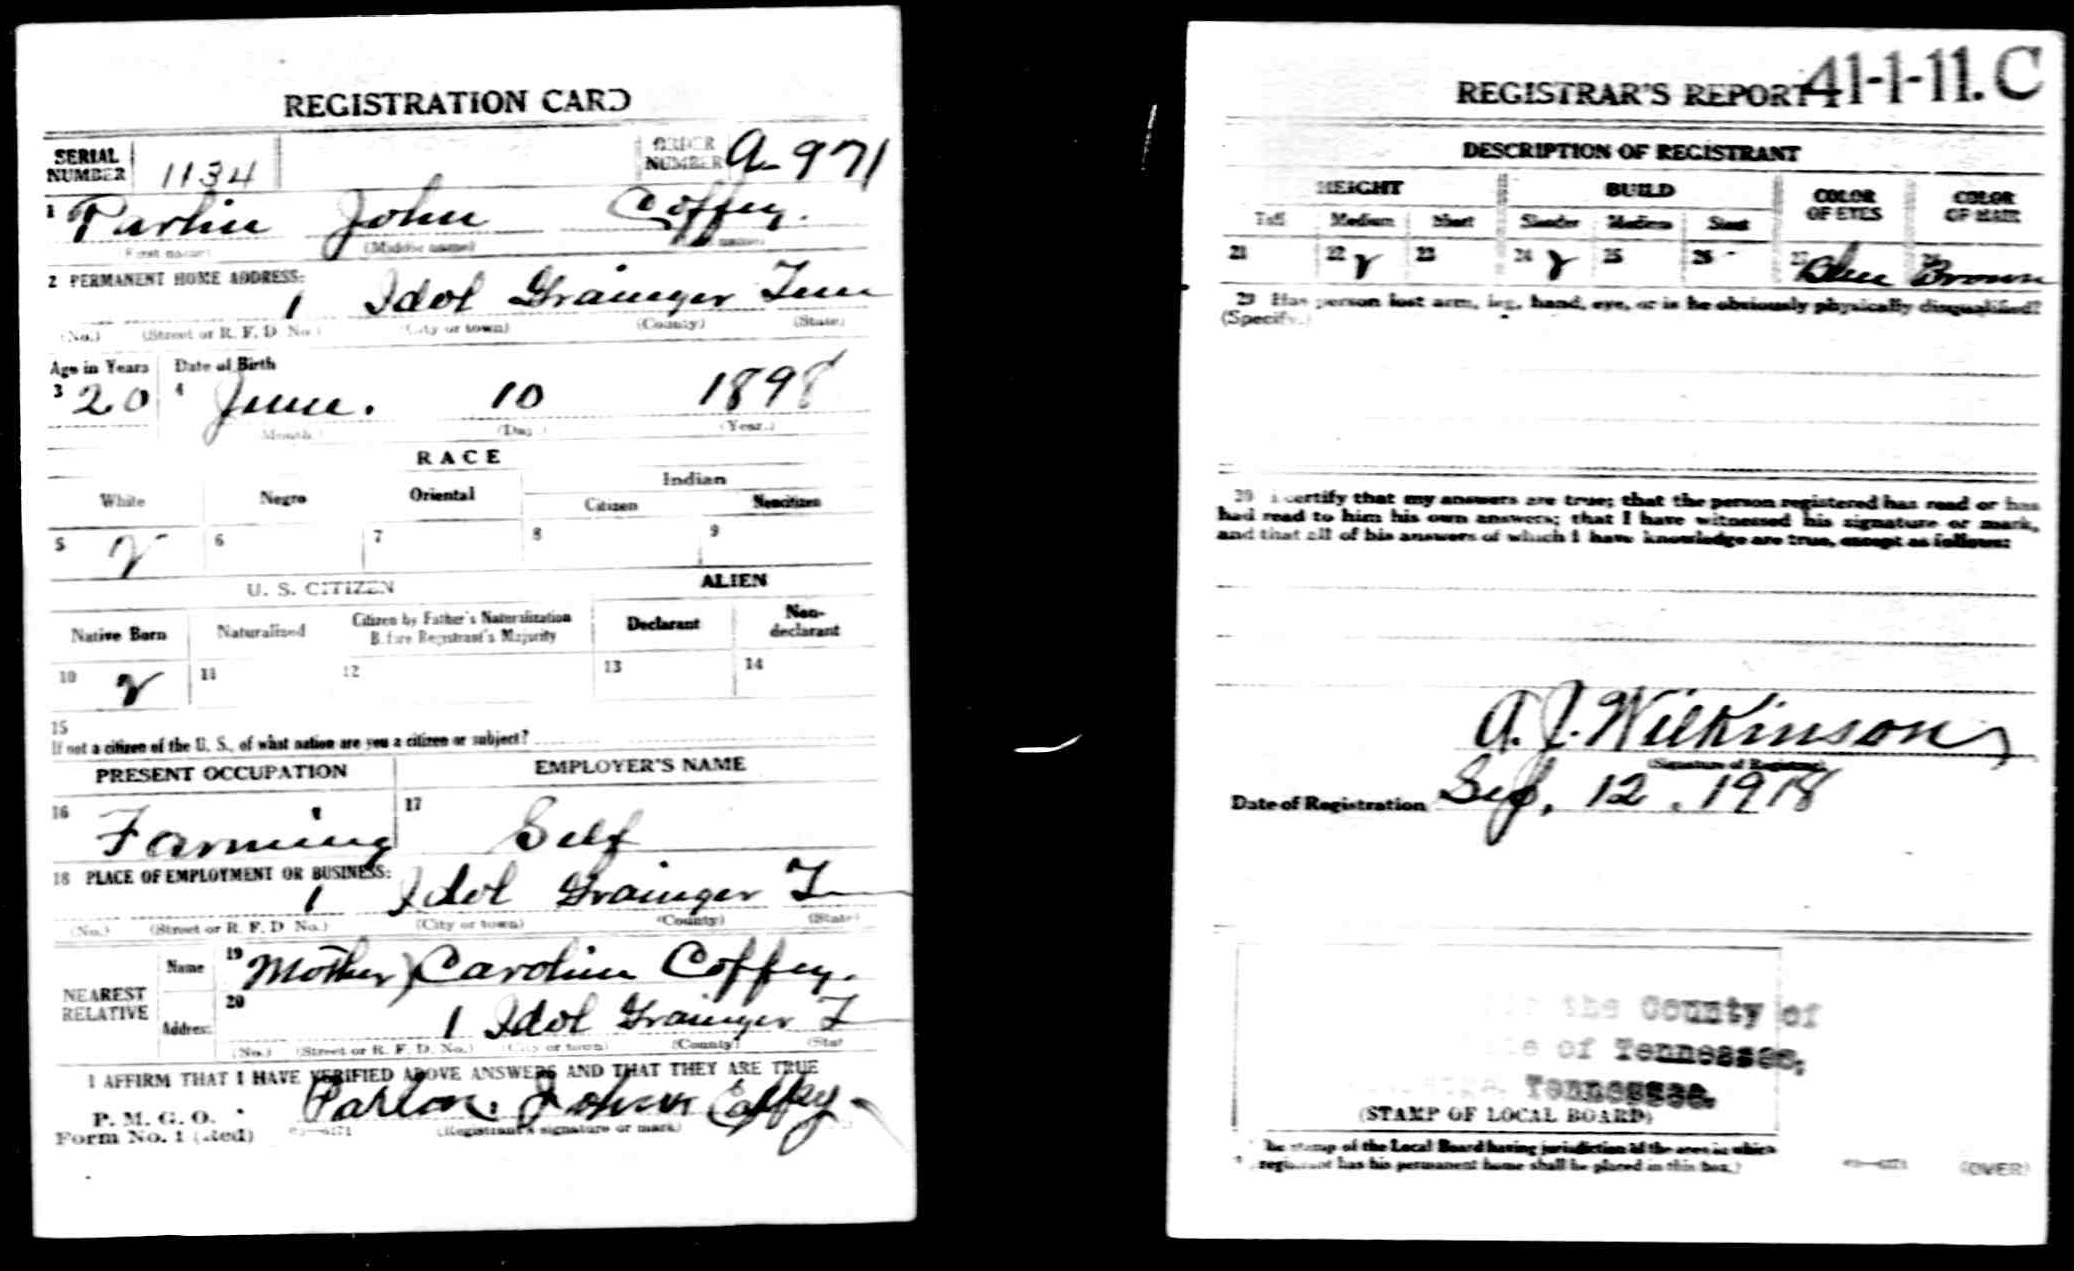 REGISTRATION CARD
SERIAL NUMBER 1134 ORDER NUMBER A-971
1 Parlin John Coffey.
(First name) (Middle name) name)
2 PERMANENT HOME ADDRESS:
1 Idol Grainger Tenn
(No.) (Street or R. F. D. No.) (City or town) (County) (State)
Age in Years Date of Birth
3 20 4 June. 10 1898
(Month.) (Day.) (Year.)
RACE
White Negro Oriental Indian
Citizen Noncitizen
5 6 7 8 9
U. S. CITIZEN ALIEN
Native Born Naturalized Citizen by Father's Naturalization Before Registrant's Majority Declarant Non-declarant
10 11 12 13 14
15
If not a citizen of the U. S., of what nation are you a citizen or subject?
PRESENT OCCUPATION EMPLOYER'S NAME
16 Farming 17 Self
18 PLACE OF EMPLOYMENT OR BUSINESS:
1 Idol Grainger T
(No.) (Street or R. F. D. No.) (City or town) (County) (State)
NEAREST RELATIVE
Name 19 Mother) Carolin Coffey.
Address 20 1 Idol Grainger T
(No.) (Street or R. F. D. No.) (City or town) (County) (Stat
I AFFIRM THAT I HAVE VERIFIED ABOVE ANSWERS AND THAT THEY ARE TRUE
P. M. G. O.
Form No. 1 (Red) Parlon John Coffey
(Registrant's signature or mark)
REGISTRAR'S REPORT 41-1-11.C
DESCRIPTION OF REGISTRANT
HEIGHT BUILD COLOR OF EYES COLOR OF HAIR
Tall Medium Short Slender Medium Stout
21 22 23 24 25 26 27 Blue Brown
29 Has person lost arm, leg, hand, eye, or is he obviously physically disqualified?
(Specify.)
30 I certify that my answers are true; that the person registered has read or has
had read to him his own answers; that I have witnessed his signature or mark,
and that all of his answers of which I have knowledge are true, except as follows:
A. J. Wilkinson
(Signature of Registrar)
Date of Registration Sep. 12, 1918
the County of
of Tennessee,
Tennessee.
(STAMP OF LOCAL BOARD)
The stamp of the Local Board having jurisdiction of the area in which
registrant has his permanent home shall be placed in this box.)
(OVER)